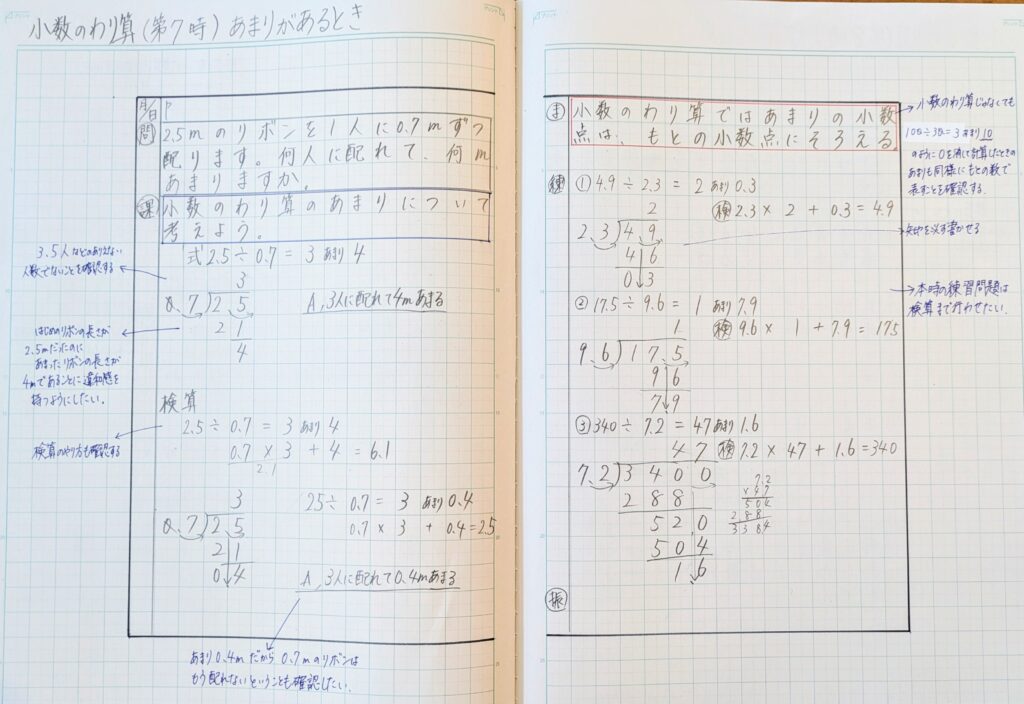 小数のわり算(第7時)あまりがあるとき
月/日
P
問
2.5mのリボンを1人に0.7mずつ
配ります。何人に配れて、何m
あまりますか。
課
小数のわり算のあまりについて
考えよう。
式 2.5÷0.7 = 3 あまり 4
3
0.7)2.5
21
4
A, 3人に配れて4mあまる
3.5人などのありえない
人数でないことを確認する
はじめのリボンの長さが
2.5mだったのに
あまったリボンの長さが
4mであることに違和感を
持つようにしたい。
検算
2.5 ÷ 0.7 = 3 あまり 4
0.7 × 3 + 4 = 6.1
2.1
検算のやり方も確認する
3
0.7)2.5
21
0.4
25÷ 0.7 = 3 あまり 0.4
0.7 × 3 + 0.4 = 2.5
A, 3人に配れて0.4mあまる
あまり0.4mだから0.7mのリボンは
もう配れないということも確認したい。
ま
小数のわり算ではあまりの小数
点は、もとの小数点にそろえる
小数のわり算じゃなくても
100÷30=3 あまり10
のように0を消して計算したときの
あまりも同様にもとの数で
表すことを確認する。
練
①4.9÷2.3 = 2 あまり 0.3
検 2.3 × 2 + 0.3 = 4.9
2
2.3)4.9
46
0.3
矢印を必ず書かせる
②17.5÷9.6 = 1 あまり 7.9
検 9.6 × 1 + 7.9 = 17.5
1
9.6)17.5
96
7.9
本時の練習問題は
検算まで行わせたい。
③340÷7.2 = 47 あまり 1.6
検 7.2 × 47 + 1.6 = 340
47
7.2)3400
288
520
504
1.6
7.2
×47
504
288
338.4
振